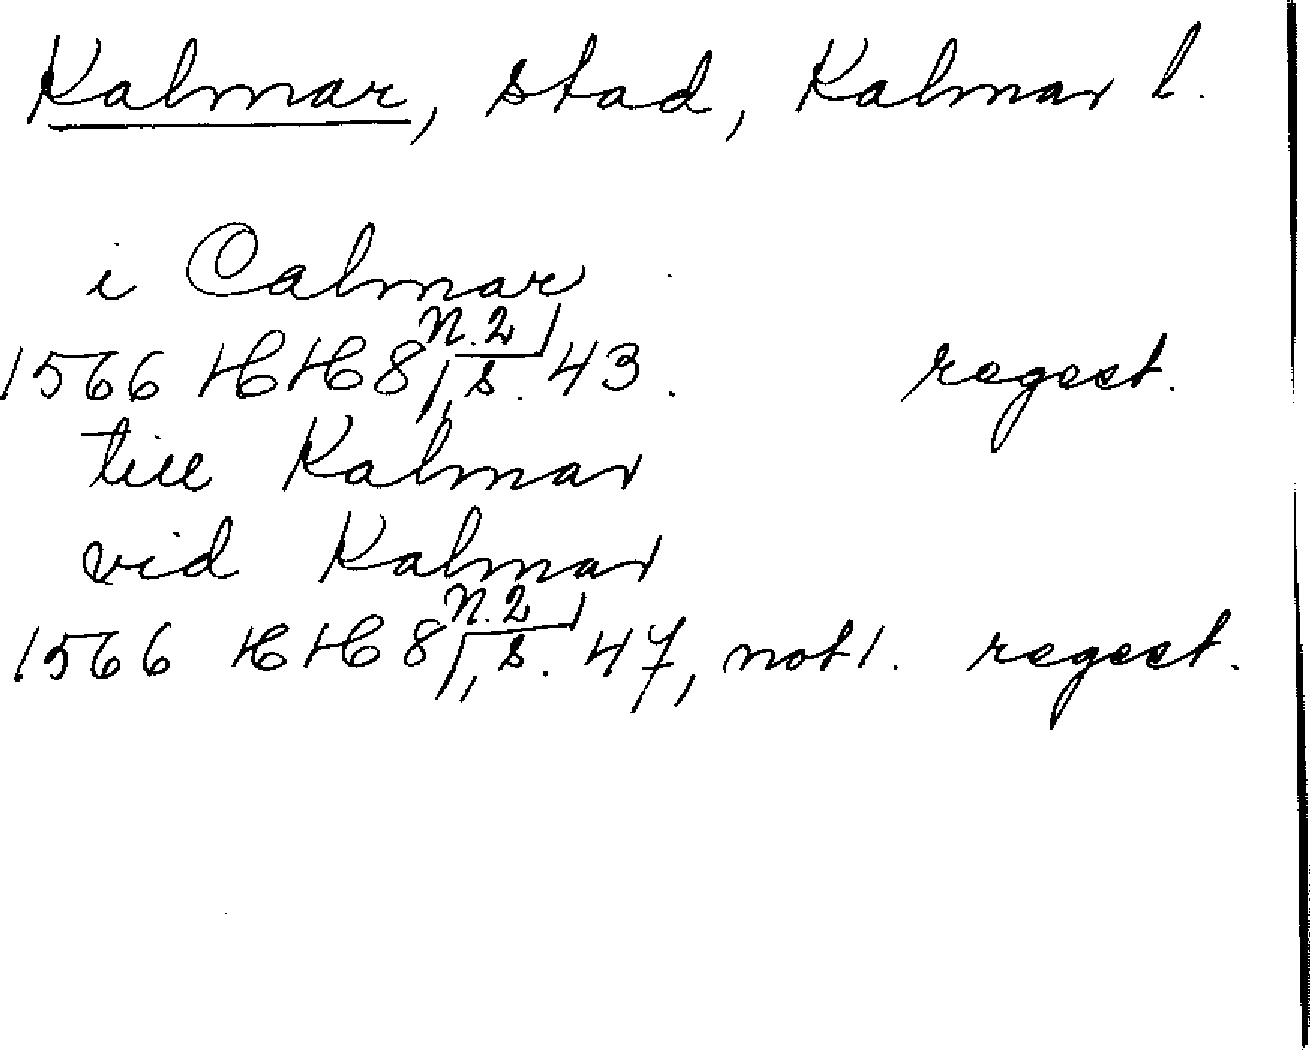 Kalmar, stad, Kalmar l.
i Calmar
1566 HH 8 n. 2, s. 43. regest.
till Kalmar
vid Kalmar
1566 HH 8 n. 2, s. 47, not 1. regest.